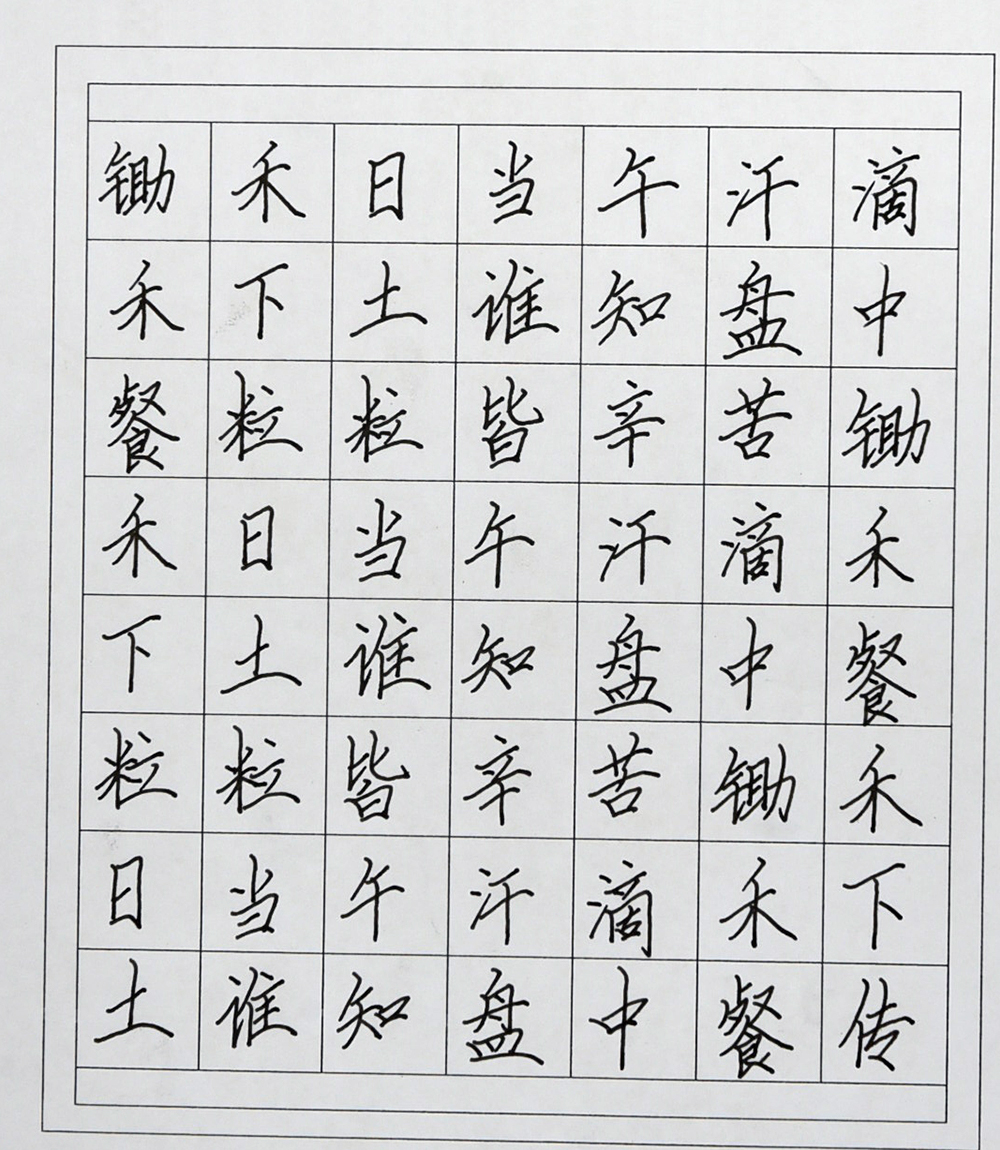 锄禾日当午汗滴
禾下土谁知盘中
餐粒粒皆辛苦锄
禾日当午汗滴禾
下土谁知盘中餐
粒粒皆辛苦锄禾
日当午汗滴禾下
土谁知盘中餐传